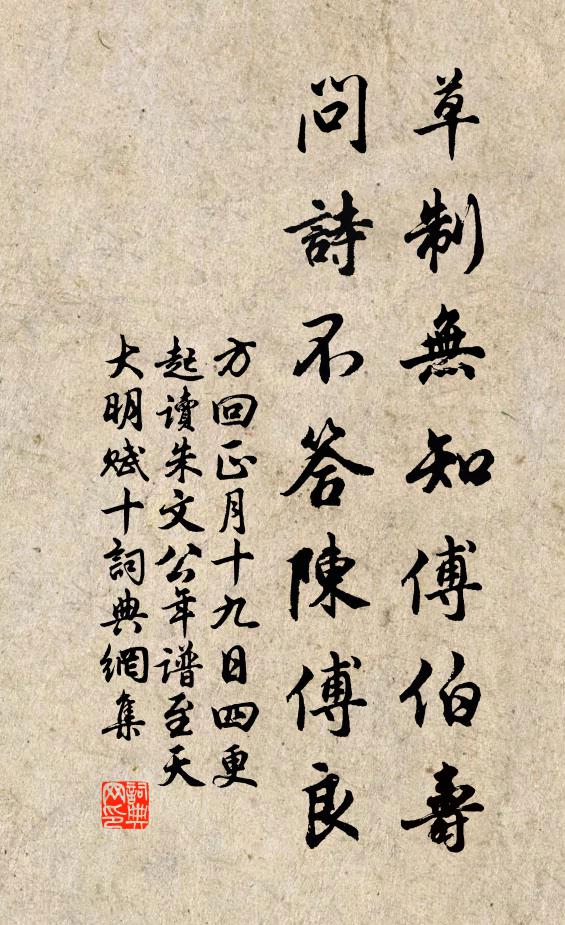 草制無知傅伯壽
問詩不答陳傅良
方回正月十九日四更
起讀朱文公年谱至天
大明赋十詞典網集
詞典
网印